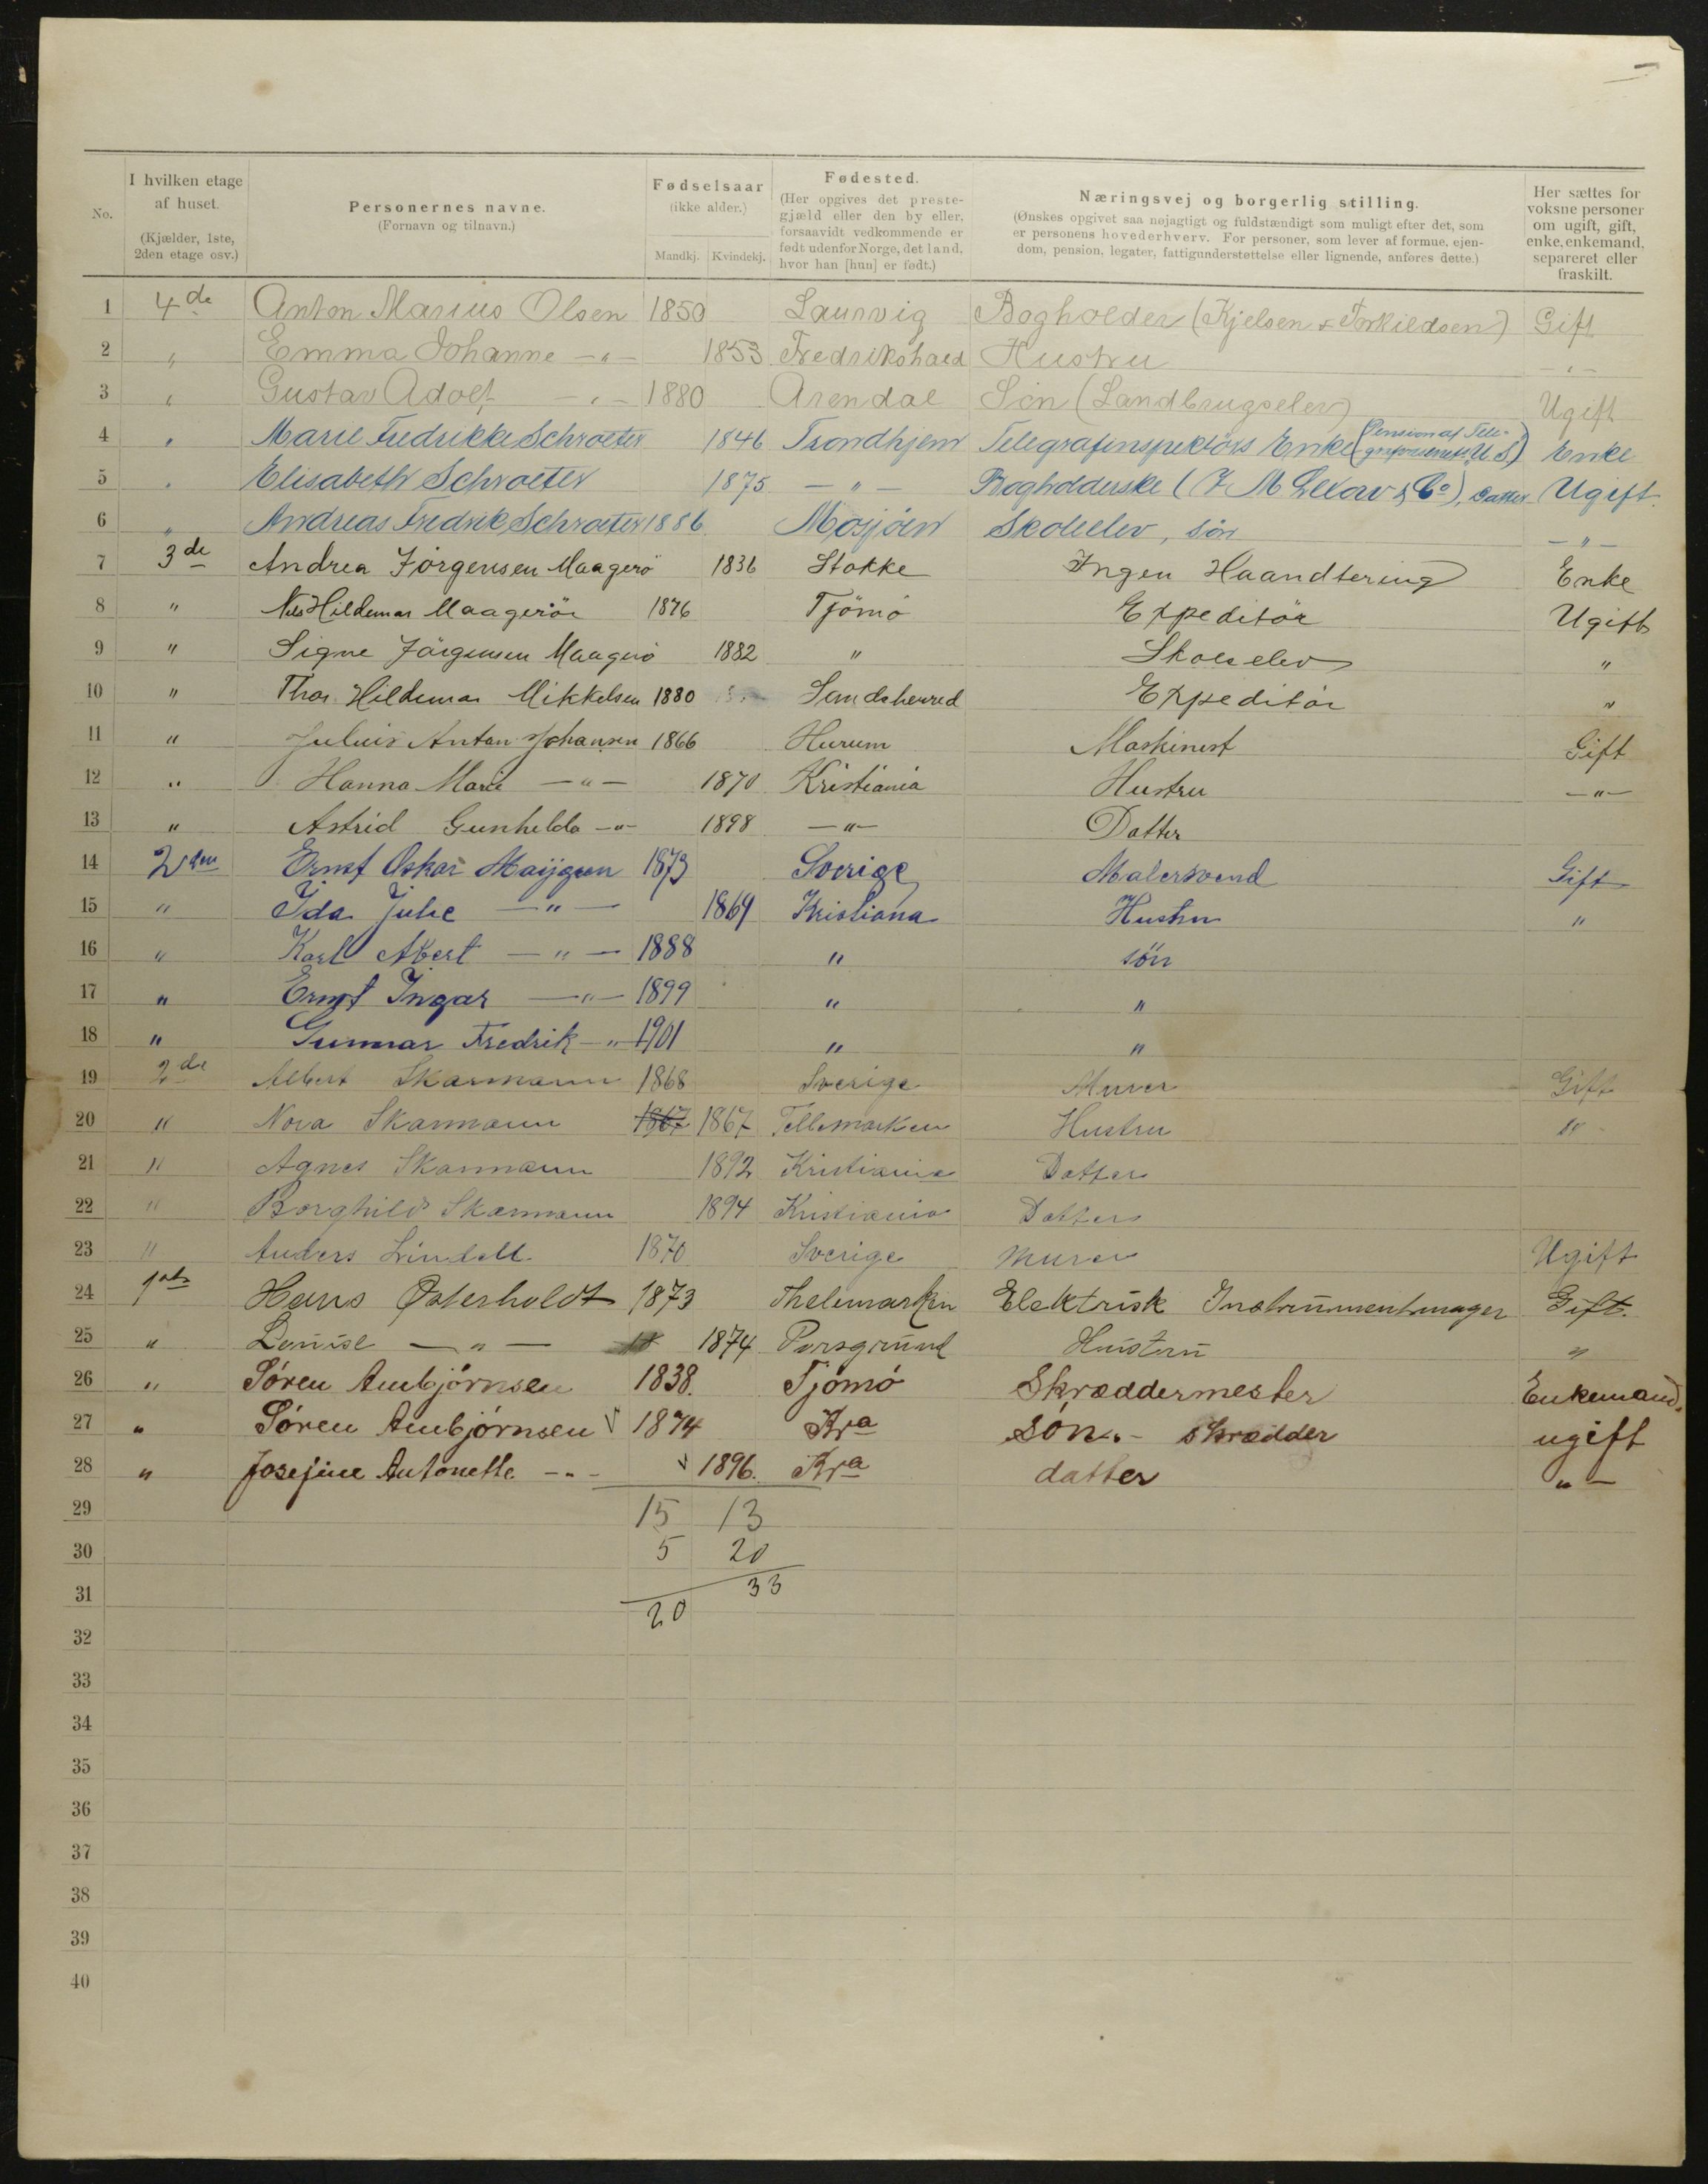 No.
I hvilken etage af huset. (Kjælder, 1ste, 2den etage osv.)
Personernes navne. (Fornavn og tilnavn.)
Fødselsaar (ikke alder.) Mandkj. Kvindekj.
Fødested. (Her opgives det prestegjæld eller den by eller, forsaavidt vedkommende er født udenfor Norge, det land, hvor han [hun] er født.)
Næringsvej og borgerlig stilling. (Ønskes opgivet saa nøjagtigt og fuldstændigt som muligt efter det, som er personens hovederhverv. For personer, som lever af formue, ejendom, pension, legater, fattigunderstøttelse eller lignende, anføres dette.)
Her sættes for voksne personer om ugift, gift, enke, enkemand, separeret eller fraskilt.
1 4de Anton Marius Olsen 1850 Laurvig Bogholder (Kjelsen & Torkildsen) Gift
2 " Emma Johanne —"— 1853 Fredrikshald Hustru —"—
3 " Gustav Adolf —"— 1880 Arendal Søn (Landbrugselev) Ugift
4 " Marie Fredrikke Schroeter 1846 Trondhjem Telegrafinspektörs Enke (Pension af Tele- U. S.) Enke
5 " Elisabeth Schroeter 1875 —"— Bogholderske ( & Co), Datter Ugift.
6 " Andreas Fredrik Schroeter 1886 Mosjöen Skoleelev, sön —"—
7 3de Andrea Jørgensen Maagerö 1836 Stokke Ingen Haandtering Enke
8 " Nils Hildemar Maagerö 1876 Tjömö Expeditör Ugift
9 " Signe Jörgensen Maagerö 1882 " Skoleelev "
10 " Thor Hildemar Mikkelsen 1880 Sandeherred Expeditör "
11 " Julius Anton Johansen 1866 Hurum Maskinist Gift
12 " Hanna Marie —"— 1870 Kristiania Hustru —"—
13 " Astrid Gunhilda —"— 1898 —"— Datter
14 2den Ernst Oskar 1873 Sverige Malersvend Gift
15 " Ida Julie —"— 1869 Kristiana Hustru "
16 " Karl Albert —"— 1888 " sön
17 " Ernst Ingar —"— 1899 " "
18 " Gunnar Fredrik —"— 1901 " "
19 2de Albert Skarmann 1868 Sverige Murer Gift
20 " Nora Skarmann 1867 1867 Tellemarken Hustru "
21 " Agnes Skarmann 1892 Kristiania Datter
22 " Borghild Skarmann 1894 Kristiania Datter
23 " Anders Lindell 1870 Sverige Murer Ugift
24 1ste Hans Østerholdt 1873 Thelemarken Elektrisk Instrumentmager Gift.
25 " Louise —"— 18 1874 Porsgrund Hustru "
26 " Søren Ambjørnsen 1838. Tjømø Skræddermester Enkemand.
27 " Søren Ambjørnsen √ 1874 Kra søn.- skrædder ugift
28 " Josefine Antonette —"— √ 1896. Kra datter "—
29 15 13
30 5 20
31 33
20
32
33
34
35
36
37
38
39
40